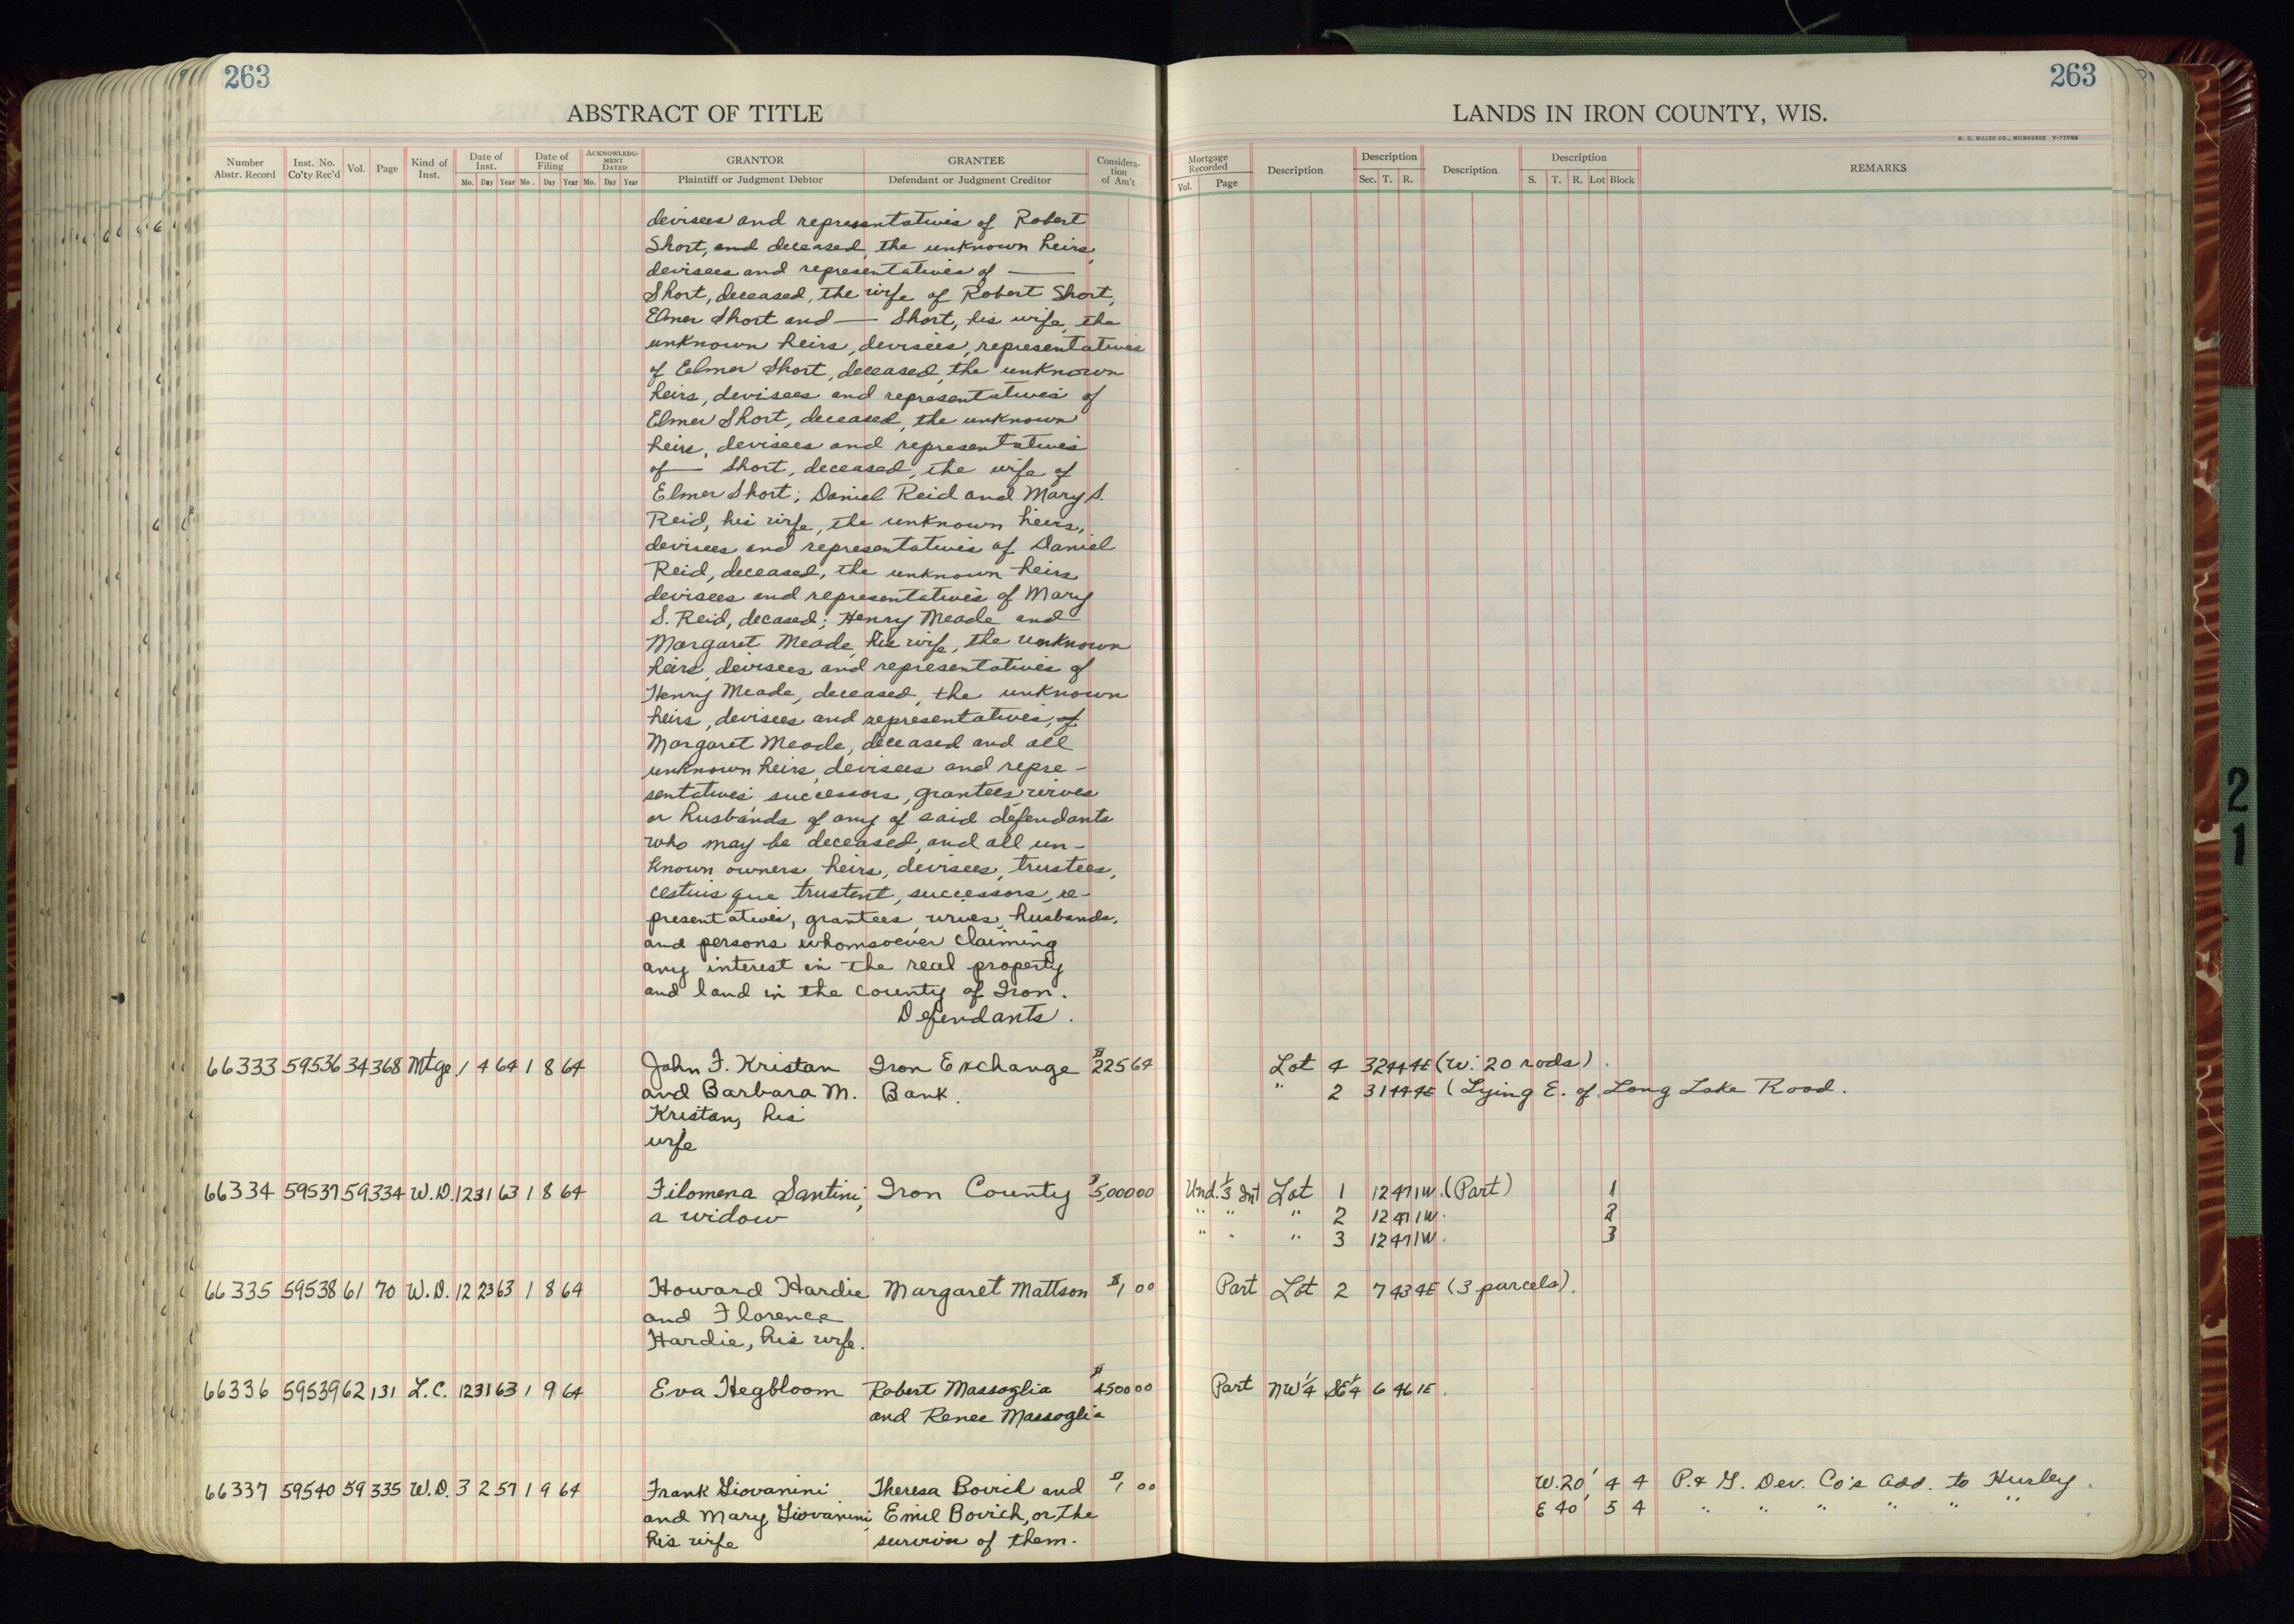 263
ABSTRACT OF TITLE
Number Abstr. Record
Inst. No. Co'ty Rec'd
Vol.
Page
Kind of Inst.
Date of Inst.
Mo. Day Year
Date of Filing
Mo. Day Year
ACKNOWLEDG-MENT DATED
Mo. Day Year
GRANTOR
Plaintiff or Judgment Debtor
GRANTEE
Defendant or Judgment Creditor
Considera-tion of Am't
devisees and representatives of Robert
Short, and deceased, the unknown heirs,
devisees and representatives of ——
Short, deceased, the wife of Robert Short,
Elmer Short and — Short, his wife, the
unknown heirs, devisees, representatives
of Elmer Short, deceased, the unknown
heirs, devisees and representatives of
Elmer Short, deceased, the unknown
heirs, devisees and representatives
of — Short, deceased, the wife of
Elmer Short; Daniel Reid and Mary S.
Reid, his wife, the unknown heirs,
devisees and representatives of Daniel
Reid, deceased, the unknown heirs
devisees and representatives of Mary
S. Reid, decased; Henry Meade and
Margaret Meade, his wife, the unknown
heirs, devisees, and representatives of
Henry Meade, deceased, the unknown
heirs, devisees and representatives, of
Margaret Meade, deceased and all
unknown heirs, devisees and repre-
sentatives, successors, grantees, wives
or husbands of any of said defendants
who may be deceased, and all un-
known owners, heirs, devisees, trustees,
cestuis que trustent, successors, re-
presentatives, grantees, wives, husbands,
and persons whomsoever claiming
any interest in the real property
and land in the county of Iron.
Defendants.
66333 59536 34 368 Mtge 1 4 64 1 8 64 John F. Kristan Iron Exchange $225 64
and Barbara M. Bank.
Kristan, his
wife
66334 59537 59 334 W.D. 12 31 63 1 8 64 Filomena Santini, Iron County $5,000 00
a widow
66335 59538 61 70 W.D. 12 23 63 1 8 64 Howard Hardie Margaret Mattson $1 00
and Florence
Hardie, his wife.
66336 59539 62 131 L.C. 12 31 63 1 9 64 Eva Hegbloom Robert Massoglia $4500 00
and Renee Massoglia
66337 59540 59 335 W.D. 3 2 57 1 9 64 Frank Giovanini Theresa Bovich and $1 00
and Mary Giovanini, Emil Bovich, or the
his wife survivor of them.
263
LANDS IN IRON COUNTY, WIS.
H. C. MILLER CO., MILWAUKEE
Mortgage Recorded
Vol. Page
Description
Description
Sec. T. R.
Description
Description
S. T. R. Lot Block
REMARKS
Lot 4 32 44 4E (W. 20 rods).
" 2 31 44 4E (Lying E. of Long Lake Road.
Und. 1/3 Int Lot 1 12 47 1W. (Part) 1
" " " 2 12 47 1W. 2
" " " 3 12 47 1W. 3
Part Lot 2 7 43 4E (3 parcels).
Part NW 1/4 SE 1/4 6 46 1E.
W. 20' 4 4 P. & G. Dev. Co's Add. to Hurley.
E 40' 5 4 " " " " " "
21